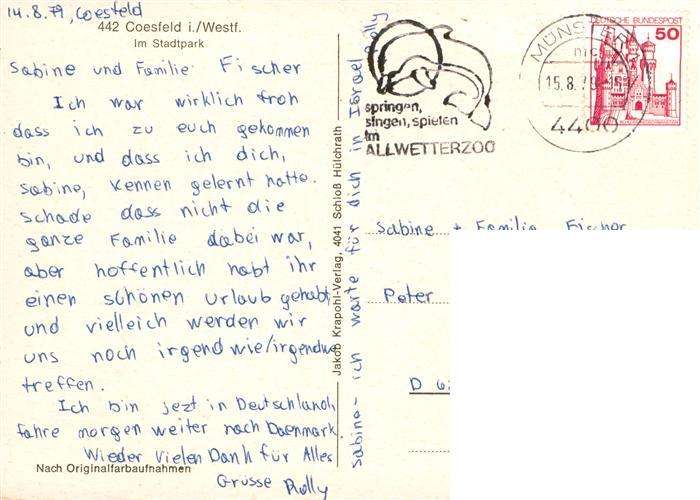 14.8.79, Coesfeld
442 Coesfeld i./Westf.
Im Stadtpark
Sabine und Familie Fischer
Ich war wirklich froh
dass ich zu euch gekommen
bin, und dass ich dich,
Sabine, kennen gelernt hatte.
schade dass nicht die
ganze Familie dabei war,
aber hoffentlich habt ihr
einen schönen Urlaub gehabt
und vielleich werden wir
uns noch irgendwie/irgendwo
treffen.
Ich bin jezt in Deutschland,
fahre morgen weiter nach Daenmark.
Wieder vielen Dank für Alles
Grüsse Rolly
Nach Originalfarbaufnahmen
Jakob Krapohl-Verlag, 4041 Schloß Hülchrath
Sabine - ich warte für dich in Israel Rolly
springen,
singen, spielen
im
ALLWETTERZOO
MÜNSTER
15.8.79
4400
DEUTSCHE BUNDESPOST
50
Sabine + Familie Fischer
Peter
D